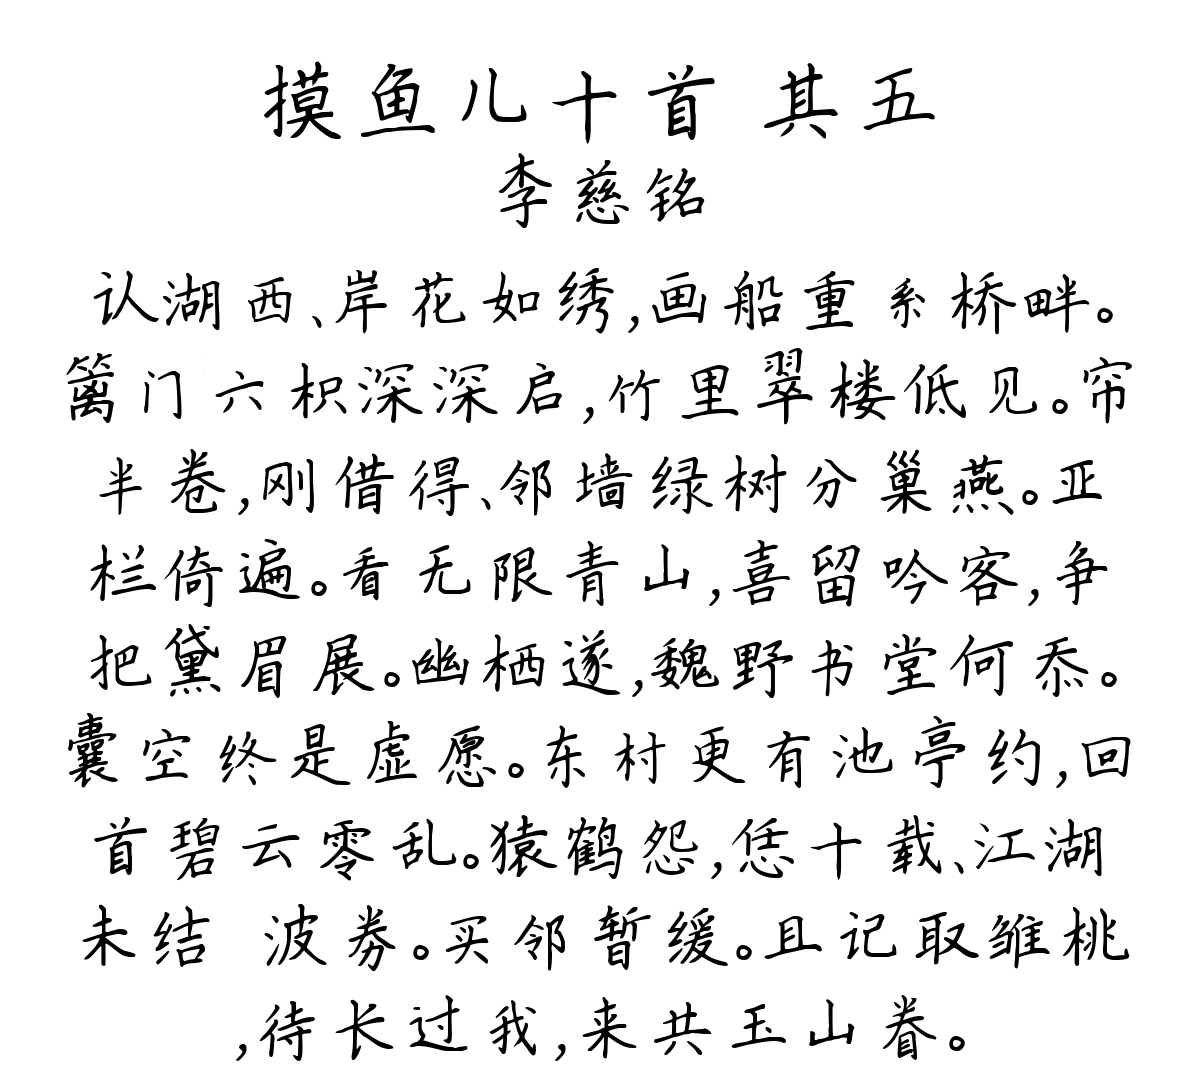 摸鱼儿十首 其五
李慈铭
认湖西、岸花如绣,画船重系桥畔。
篱门六枳深深启,竹里翠楼低见。帘
半卷,刚借得、邻墙绿树分巢燕。亚
栏倚遍。看无限青山,喜留吟客,争
把黛眉展。幽栖遂,魏野书堂何忝。
囊空终是虚愿。东村更有池亭约,回
首碧云零乱。猿鹤怨,恁十载、江湖
未结 波券。买邻暂缓。且记取雏桃
,待长过我,来共玉山眷。